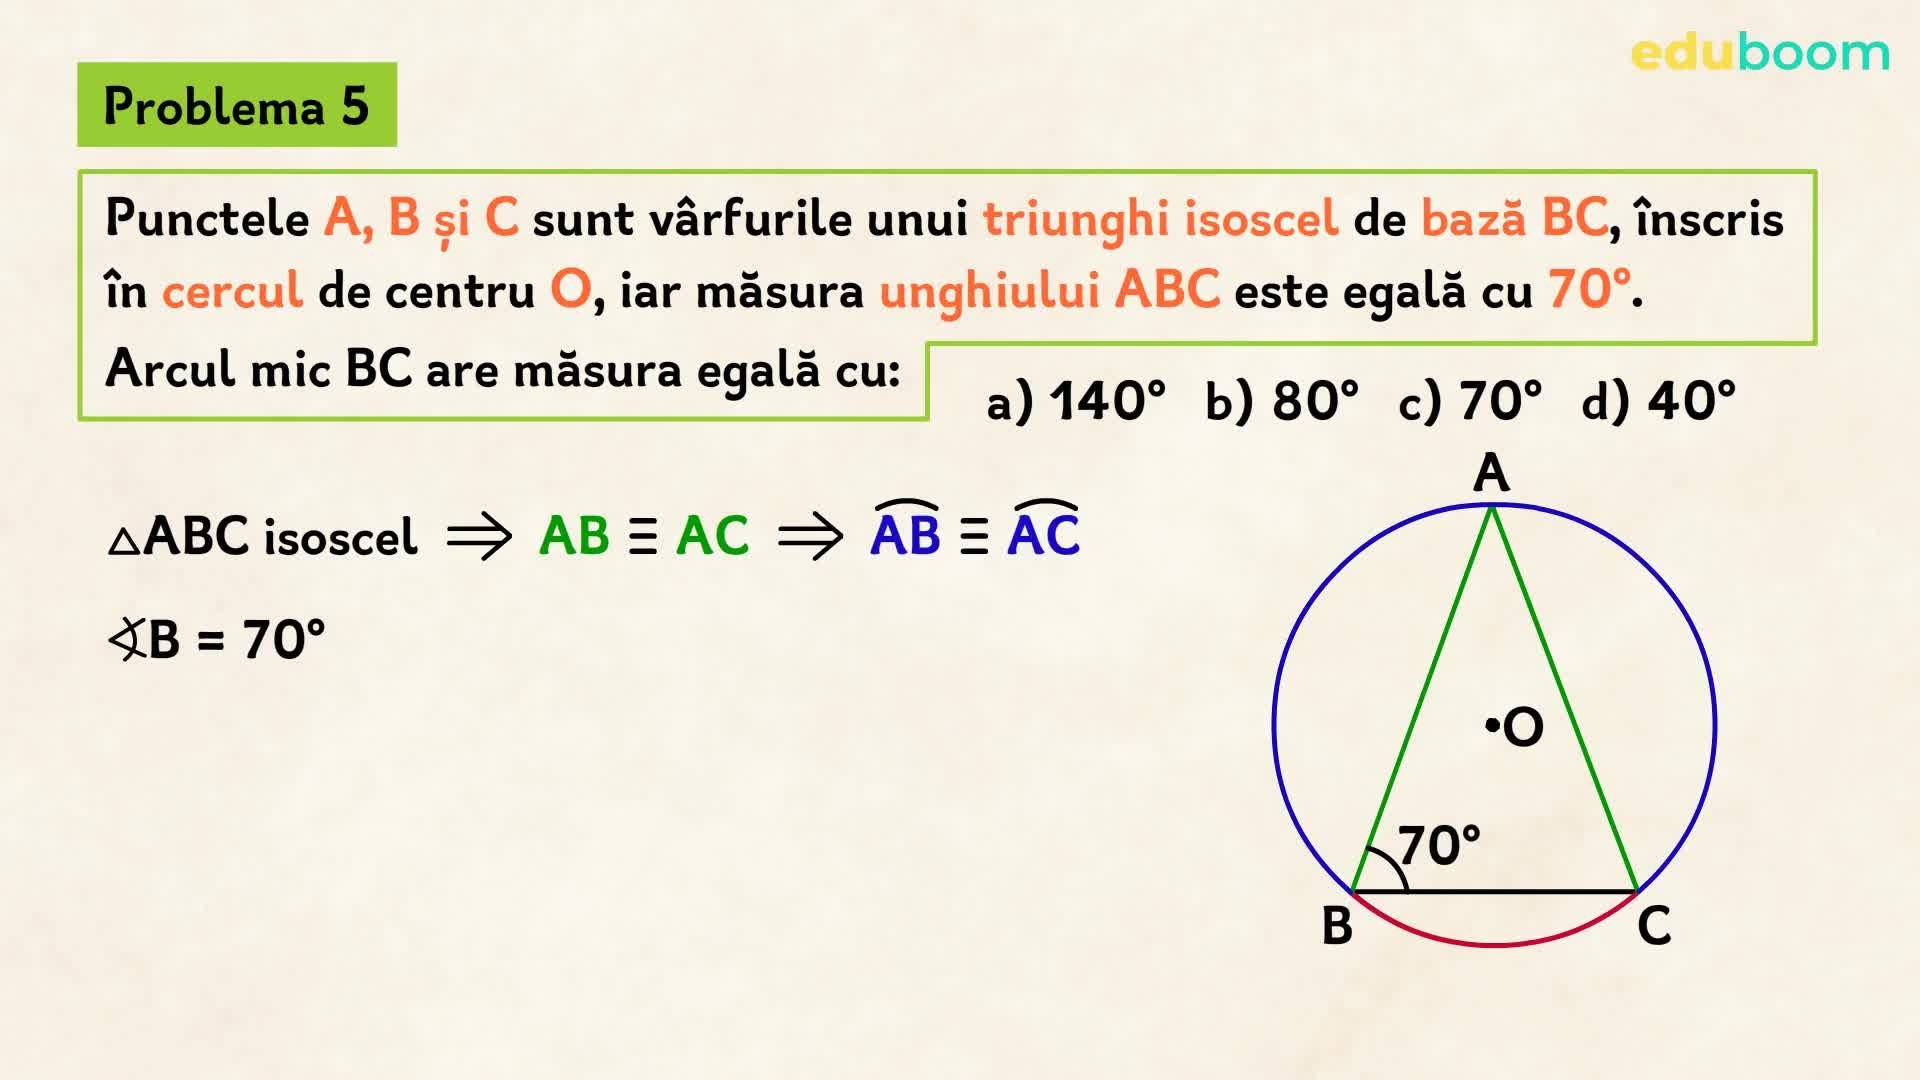 eduboom
Problema 5
Punctele A, B și C sunt vârfurile unui triunghi isoscel de bază BC, înscris
în cercul de centru O, iar măsura unghiului ABC este egală cu 70°.
Arcul mic BC are măsura egală cu:
a) 140° b) 80° c) 70° d) 40°
△ABC isoscel ⇒ AB ≡ AC ⇒ A͡B ≡ A͡C
∢B = 70°
A
O
70°
B
C